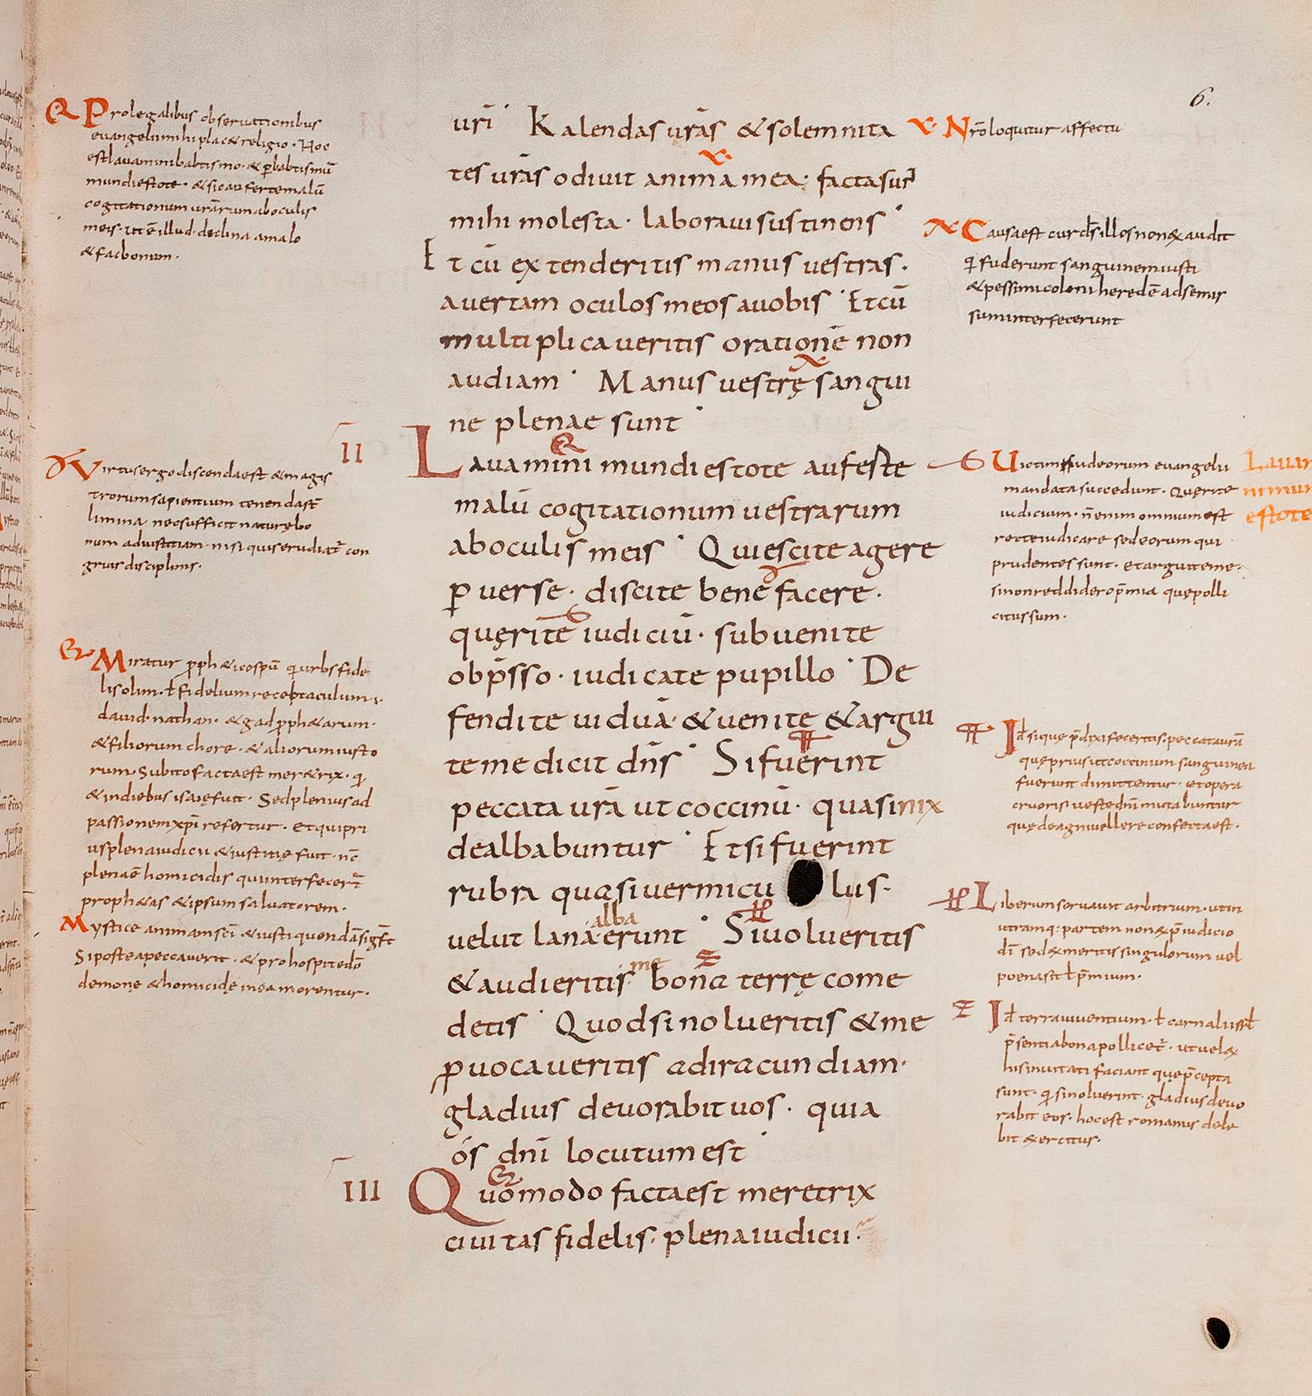 6.
uri͞ Kalendas urās & solemnita
tes urās odiuit anima mea. facta sūt
mihi molesta. laboraui sustinens
Et cū extenderitis manus uestras.
auertam oculos meos auobis Et cū
multiplicaueritis orationē non
audiam Manus uestrę sangui
ne plenae sunt
II Lauamini mundi estote auferte
malū cogitationum uestrarum
ab oculis meis Quiescite agere
puerse. discite bene facere.
quęrite iudiciū. subuenite
obp̄sso. iudicate pupillo De
fendite uiduā. & uenite & argui
te me dicit dn̄s Si fuerint
peccata urā ut coccinū. quasi nix
dealbabuntur Et si fuerint
rubra quasi uermicu lus.
alba
uelut lana erunt Si uolueritis
me
& audieritis bona terrę come
detis Quod si nolueritis & me
puocaueritis ad iracundiam.
gladius deuorabit uos. quia
ós dn̄i locutum est
III Quomodo facta est meretrix
ciuitas fidelis. plena iudicii.
Pro legalibus obseruationibus
euangelii mihi plac& religio. Hoc
est lauamini babtismo. & p babtismū
mundi estote. & sic auferte malū
cogitationum urārum ab oculis
meis. iuxta illud. declina a malo
& fac bonum.
Virtus ergo discenda est & magis
trorum sapientium tenenda st̄
limina. nec sufficit naturę bo
num ad iustitiam. nisi quis erudiat̄ con
gruis disciplinis.
Miratur pph& ic
lis olim. ł fidelium receptaculum. i.
dauid. nathan. & gad pph&arum.
& filiorum chore. & aliorum iusto
rum. Subito facta est mer&rix. q
& in diebus isaię fuit. Sed plenius ad
passionem xp̄i refertur. Et qui pri
us plena iudicii & iustitię fuit. nc̄
plena ē homicidis qui interfecer̄t
proph&as & ipsum saluatorem.
Mystice animam sc̄i & iusti quondā sig̅t
Si postea peccauerit. & pro hospite dō
demones & homicidę in ea morentur.
Nrō loquitur affectu
Causa est cur ds̄ illos non exaudit
qi fuderunt sanguinem iusti
& pessimi coloni heredē ad semis
sum interfecerunt
Uictimis iudeorum euangelii
mandata succedunt. Querite
iudicium. n̄ enim omnium est
recte iudicare sed eorum qui
prudentes sunt. et arguite me.
si non reddidero p̄mia que polli
citus sum.
Lauam
ni mun
estote
Id si que p̄dixi feceritis. peccata urā
que prius ut coccinum sanguinea
fuerunt dimittentur. et opera
cruoris ueste dn̄i mutabuntur
que de agni uellere confecta est.
Liberum seruauit arbitrium. ut in
utramq; partem non ex p̄iudicio
di͞ sed ex meritis singulorum uel
poena sit ł p̄mium.
Id terra uiuentium. ł
p̄sentia bona pollicet̄. ut uel ex
his inuitati faciant que p̄cepta
sunt. qi si noluerint. gladius deuo
rabit eos. hoc est romanus dele
bit exercitus.